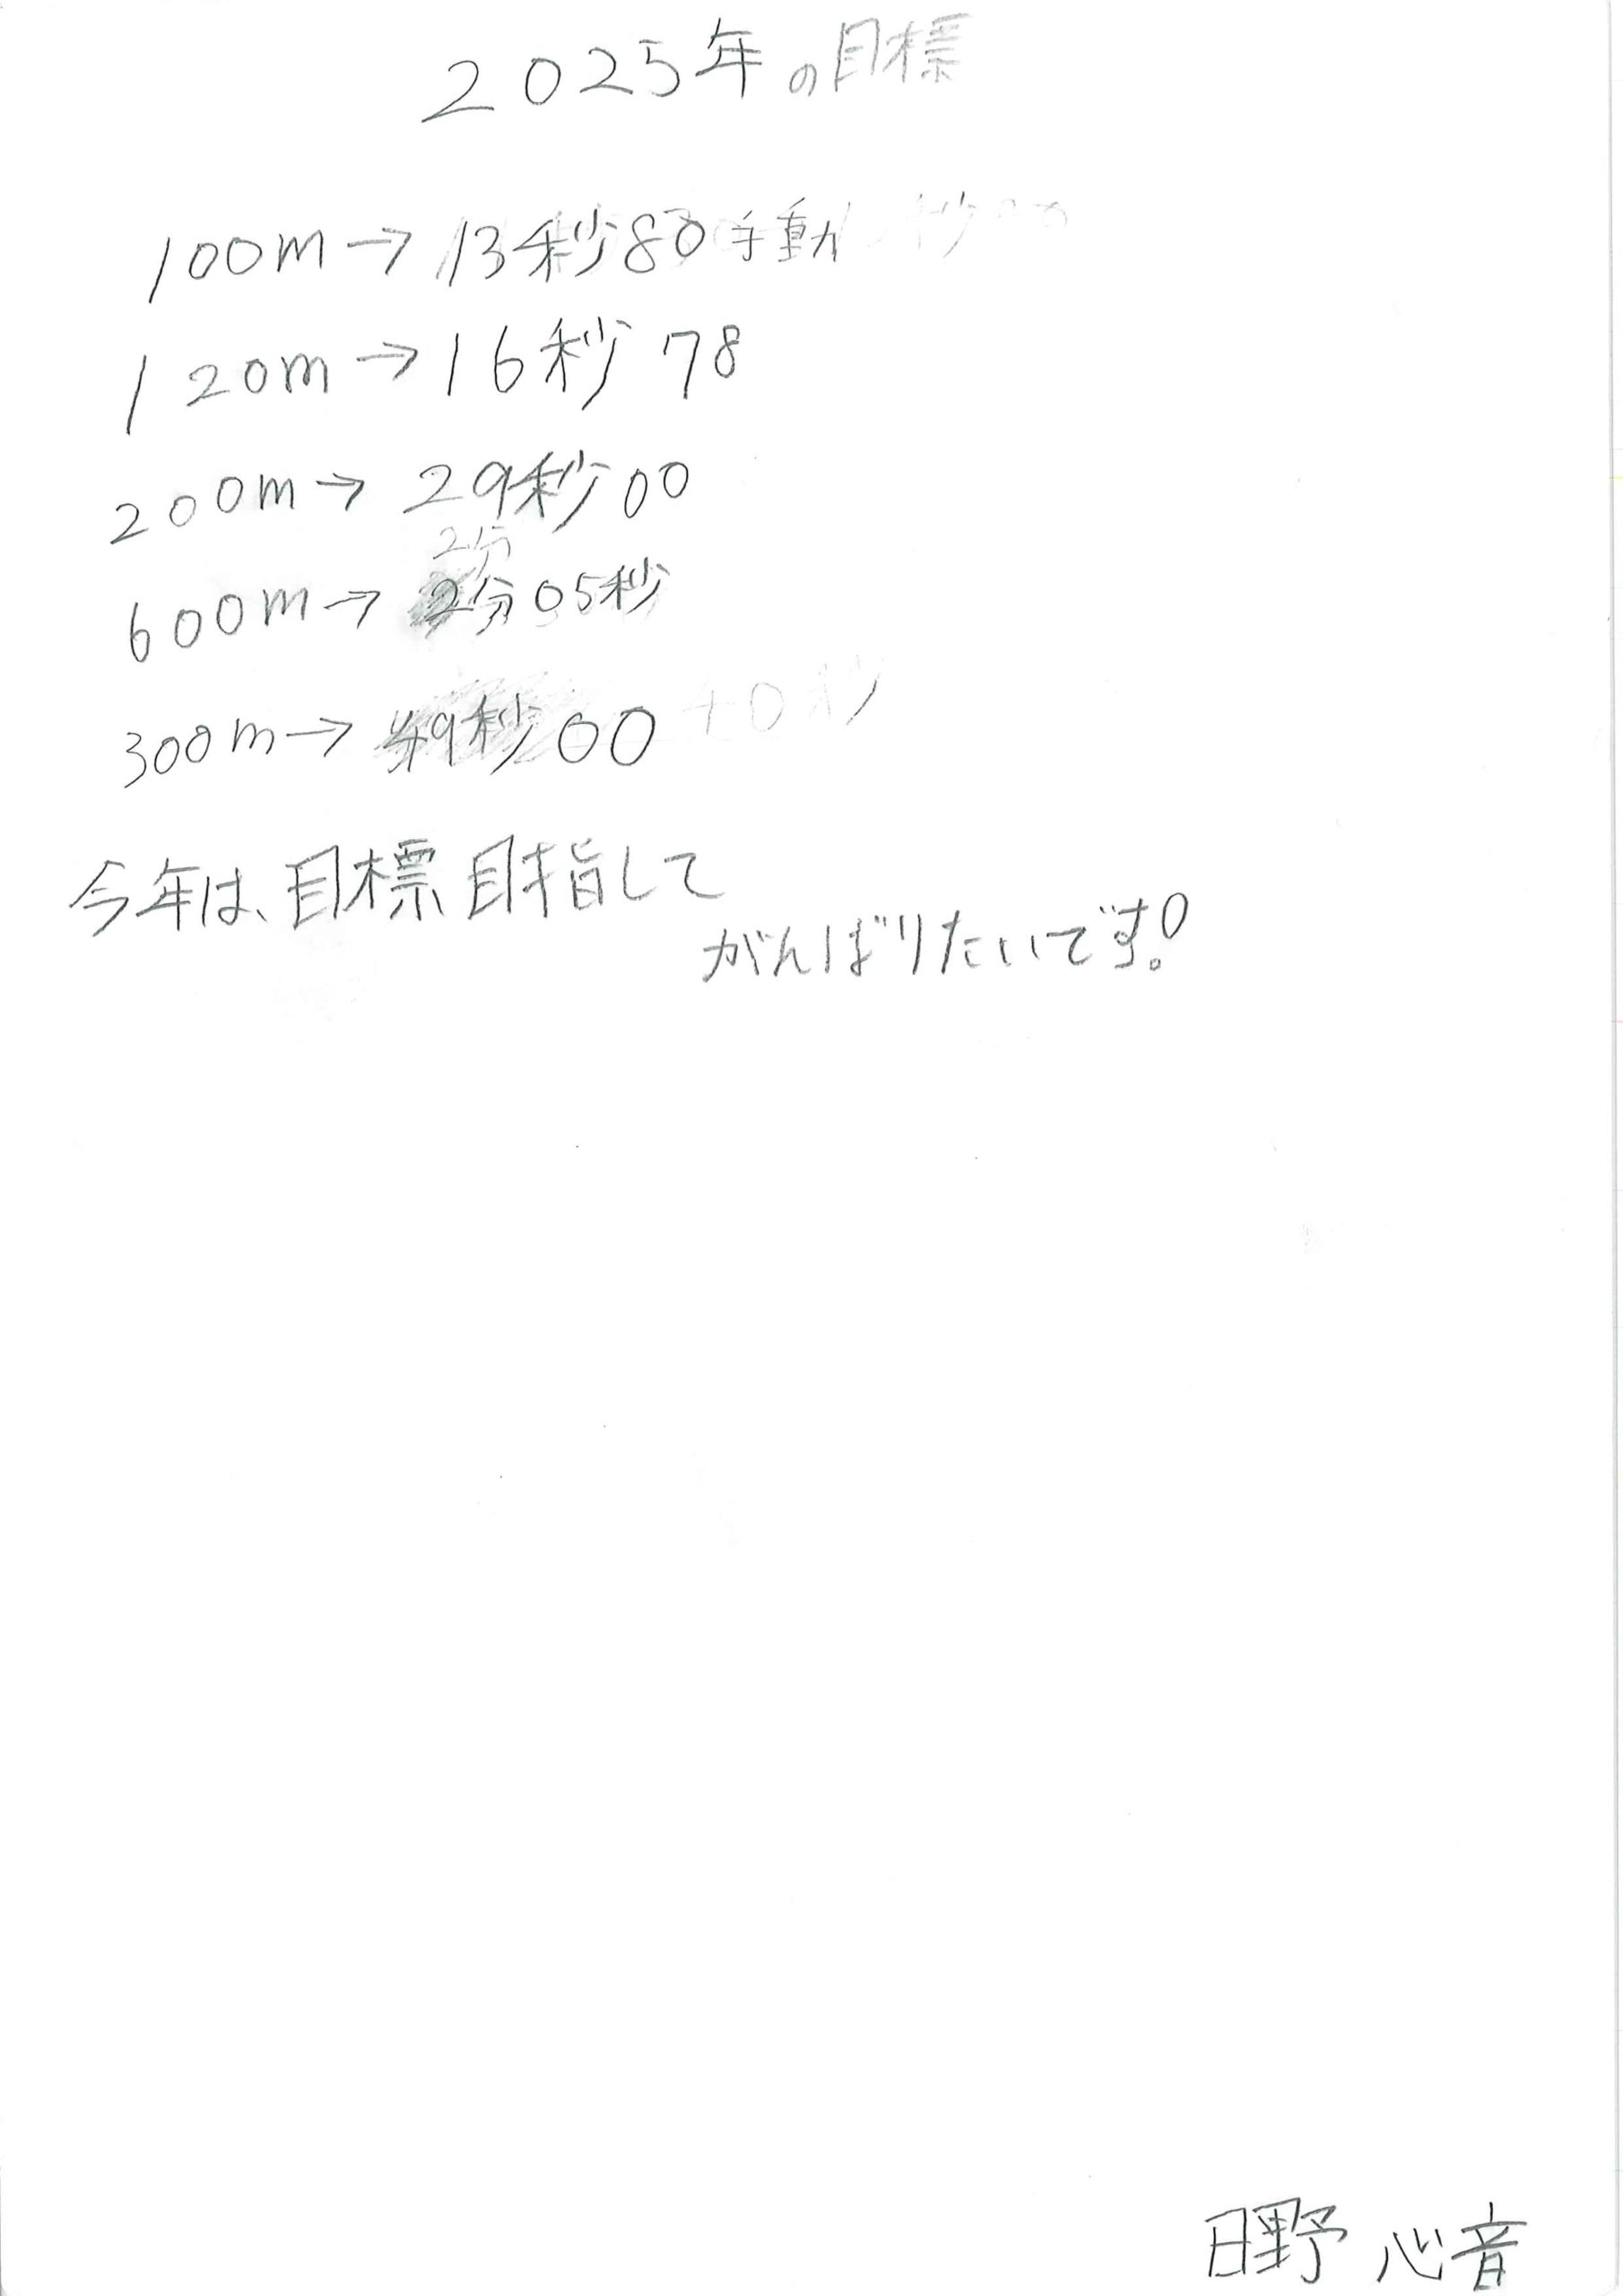 2025年の目標
100m→13秒80手動
120m→16秒78
200m→29秒00
2分
600m→2分05秒
300m→49秒00
今年は、目標目指して
がんばりたいです!
日野 心音